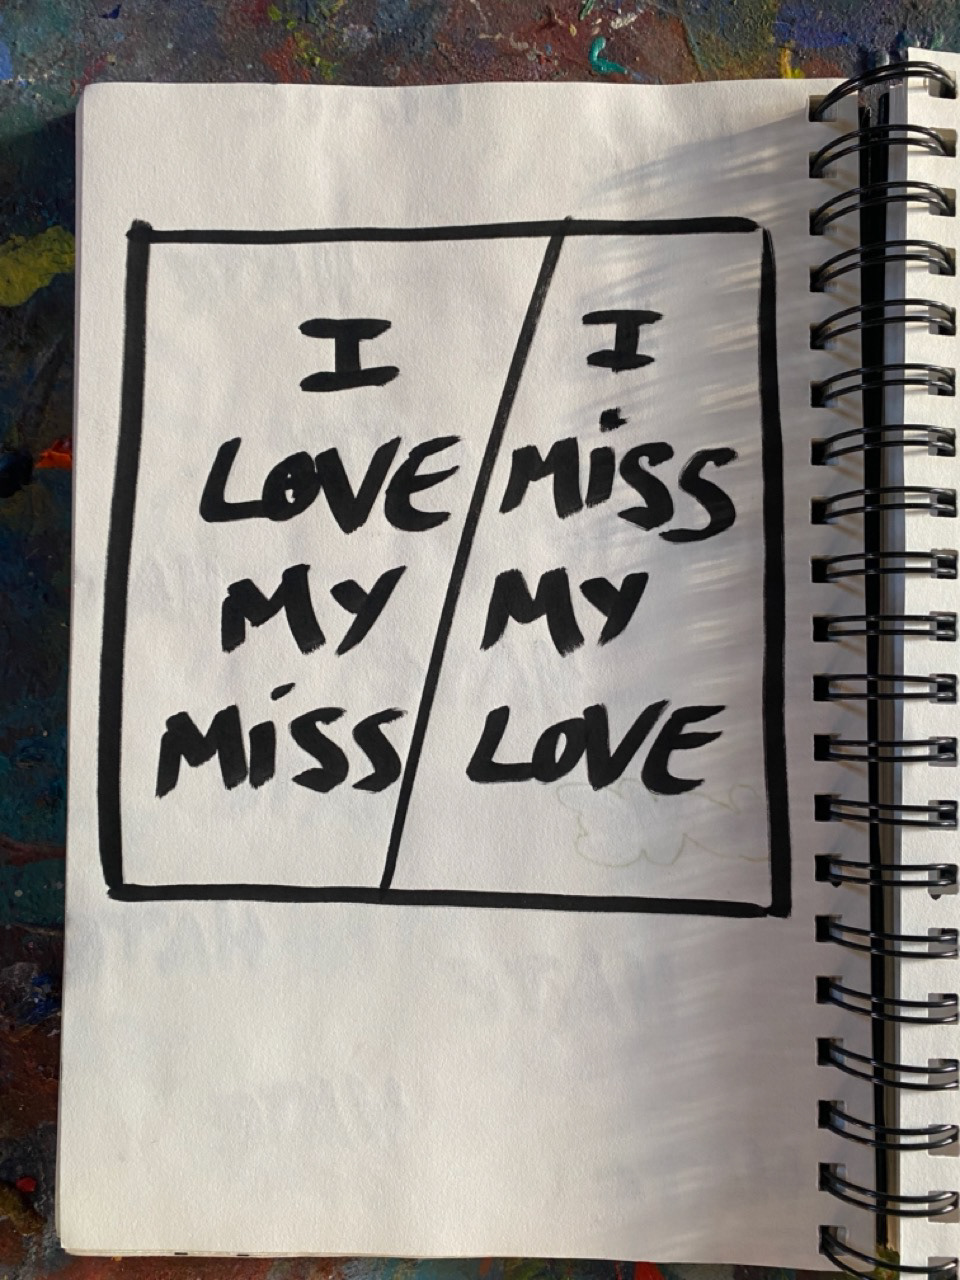 I
LOVE
MY
MiSS
I
MiSS
MY
LOVE